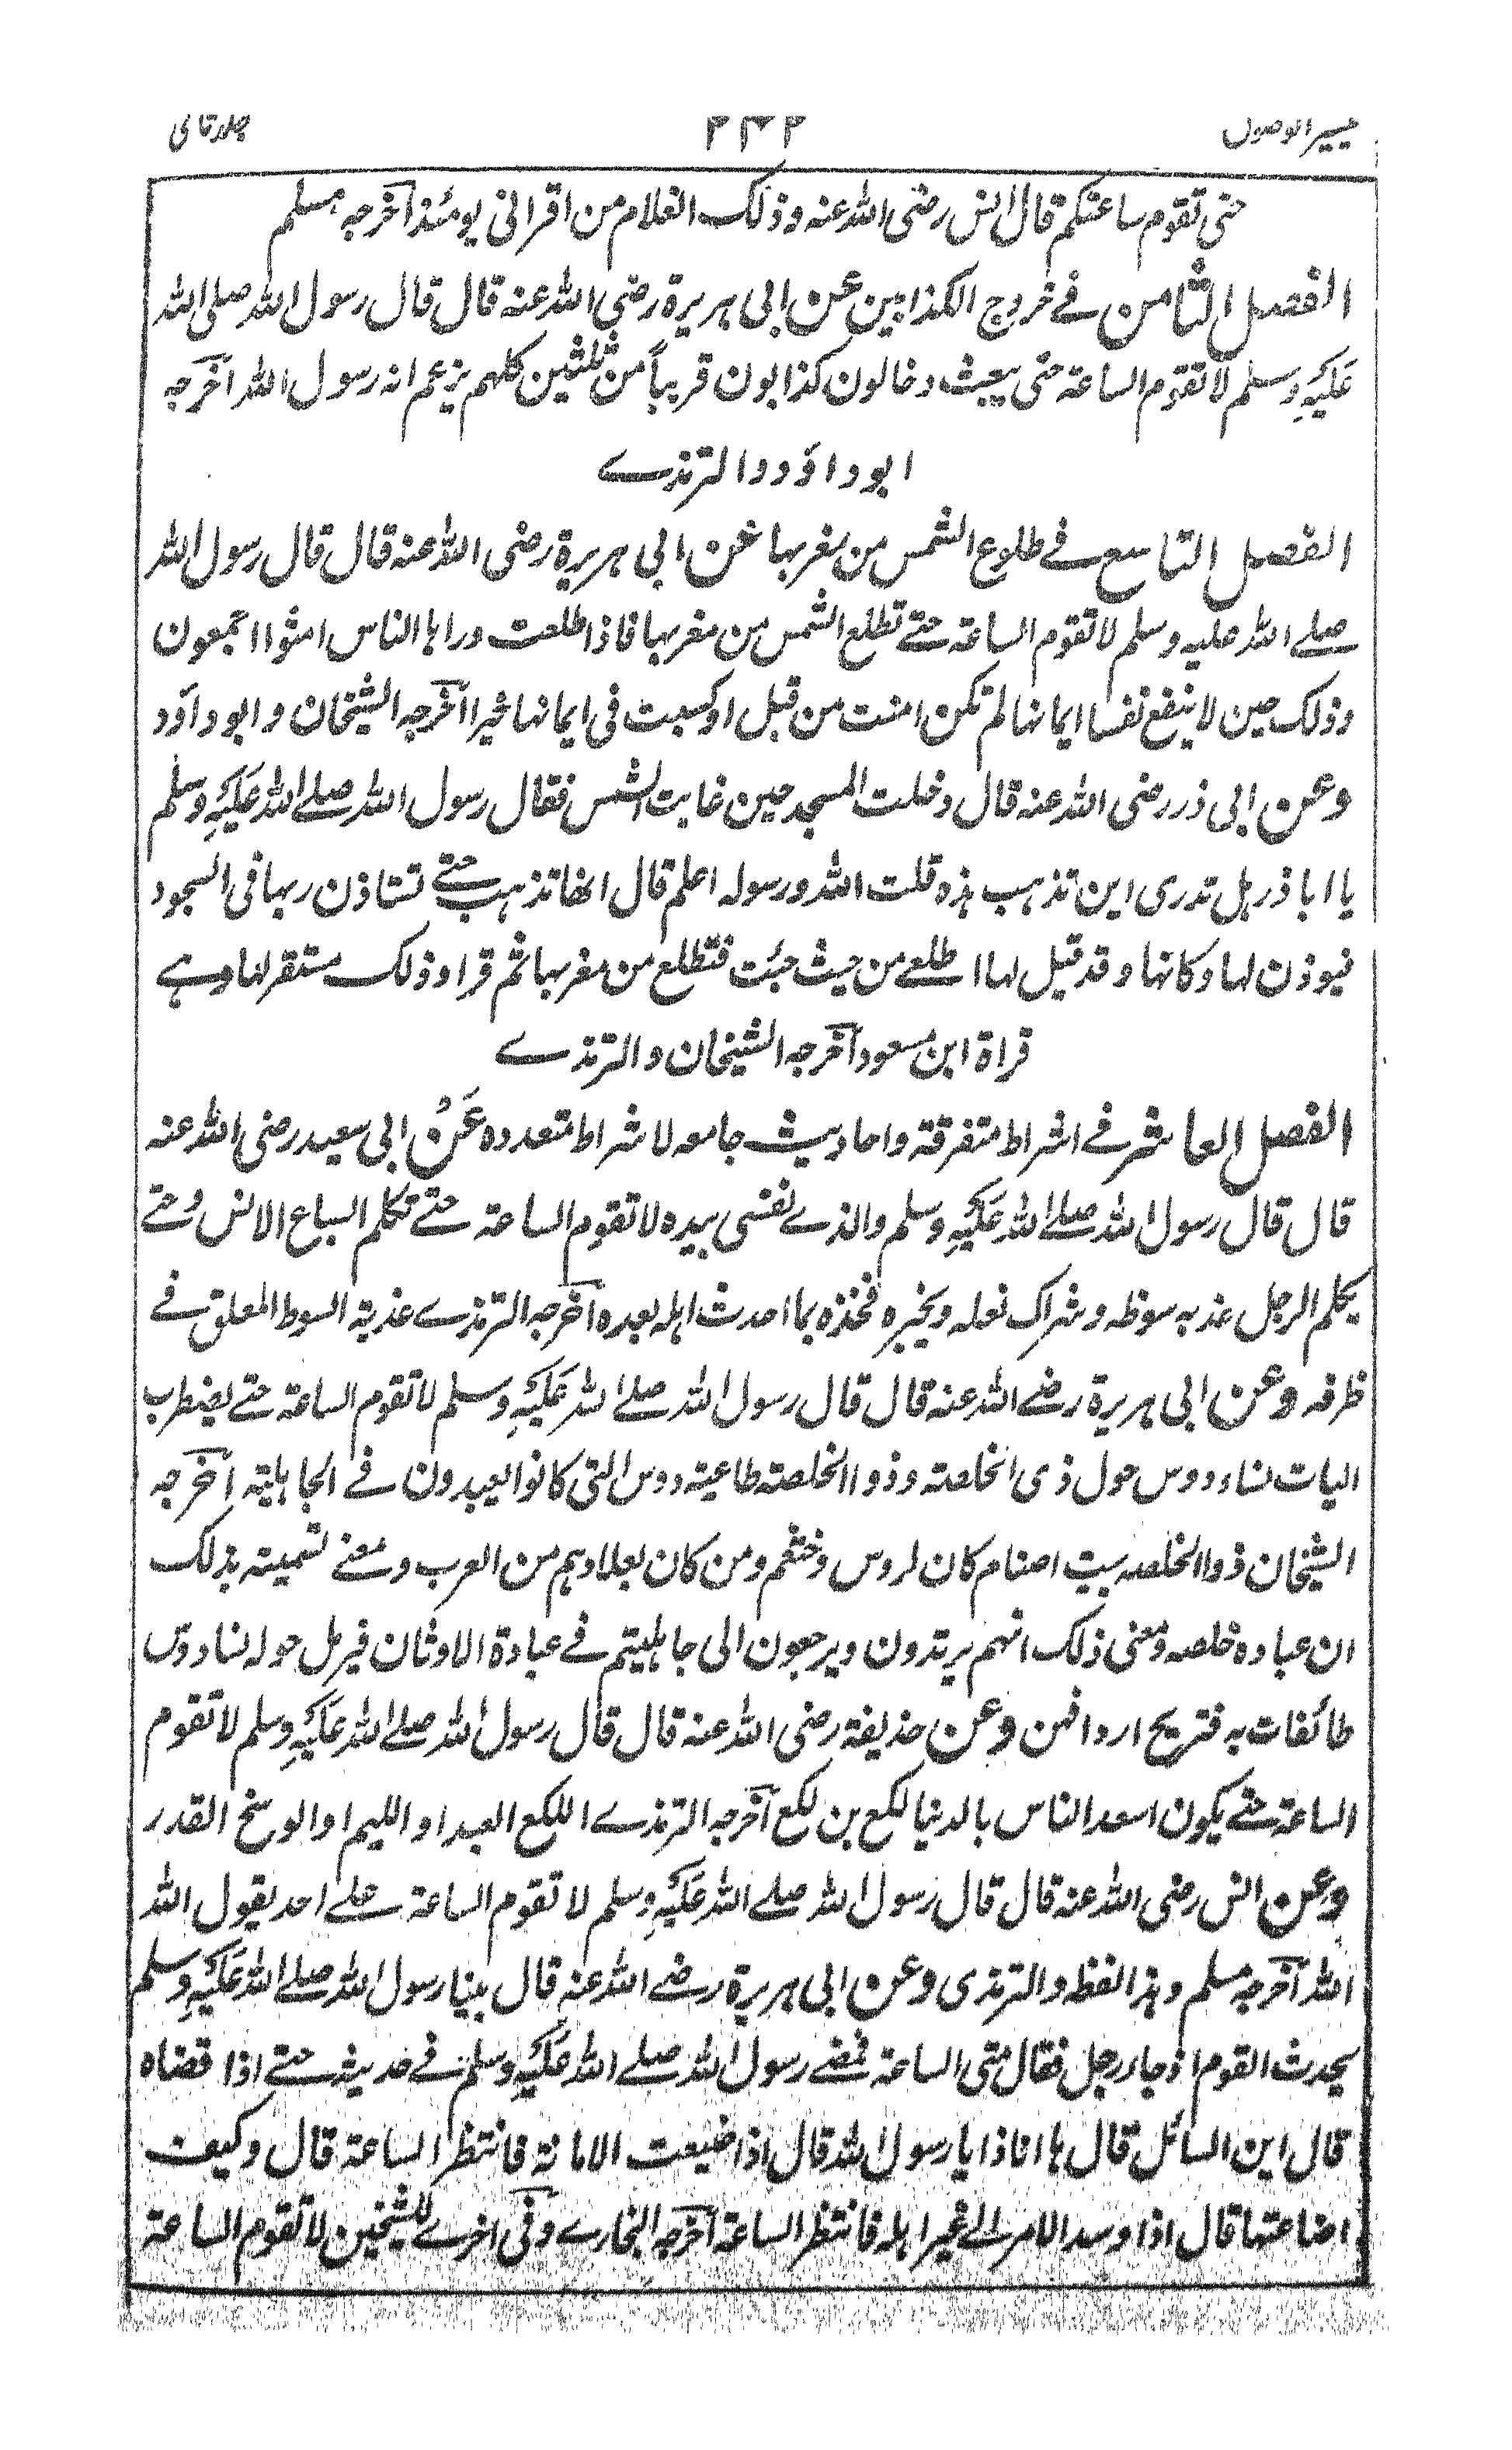 تيسير الوصول ٢٤٢ جلد ثانی
حتى تقوم ساعتكم قال انس رضى الله عنه وذلك الغلام من اقرانى يومئذ اخرجه مسلم
الفصل الثامن فے خروج الكذابين عن ابى هريرة رضى الله عنه قال قال رسول الله صلى الله
عَلَيْهِ وسلم لا تقوم الساعة حتى يبعث دجالون كذابون قريباً من ثلثين كلهم يزعم انه رسول الله اخرجه
ابو داؤد والترمذے
الفصل التاسع فے طلوع الشمس من مغربها عن ابى هريرة رضى الله عنه قال قال رسول الله
صلے الله عليه وسلم لا تقوم الساعة حتے تطلع الشمس من مغربها فاذا طلعت وراها الناس امنوا اجمعون
وذلك حين لا ينفع نفسا ايمانها لم تكن امنت من قبل او كسبت فى ايمانها خيرا اخرجه الشيخان و ابو داؤد
وعن ابى ذر رضى الله عنه قال دخلت المسجد حين غابت الشمس فقال رسول الله صلے الله عَلَيْهِ وسلم
يا ابا ذر هل تدرى اين تذهب هذه قلت الله ورسوله اعلم قال انها تذهب حتے تستاذن ربها فى السجود
فيوذن لها وكانها وقد قيل لها اطلعے من حيث جئت فتطلع من مغربها ثم قرا وذلك مستقر لها وهے
قراة ابن مسعود اخرجه الشيخان والترمذے
الفصل العاشر فے اشراط متفرقة واحاديث جامعه لاشراط متعدده عَنْ ابى سعيد رضى الله عنه
قال قال رسول الله صلے الله عَلَيْهِ وسلم والذے نفسى بيده لا تقوم الساعة حتے تكلم السباع الانس وحتے
يكلم الرجل عذبه سوطه وشراك نعله ويخبره فخذه بما احدث اهله بعده اخرجه الترمذے عذبة السوط المعلق فے
طرفه وعن ابى هريرة رضے الله عنه قال قال رسول الله صلے الله عَلَيْهِ وسلم لا تقوم الساعة حتے يضطرب
اليات نساء دوس حول ذى الخلصة وذو الخلصته طاعية دوس التى كانوا يعبدون فے الجاهلية اخرجه
الشيخان ذوا الخلصه بيت اصنام كان لدوس وخثعم ومن كان ببلادهم من العرب ومعنے تسميته بذلك
ان عباده خلصه ومعنى ذلك انهم يرتدون ويرجعون الى جاهليتهم فے عبادة الاوثان فيرمل حوله نسا دوس
طائفات به فتريح اردافهن وعن حذيفة رضى الله عنه قال قال رسول الله صلے الله عَلَيْهِ وسلم لا تقوم
الساعة حتے يكون اسعد الناس بالدنيا لكع بن لكع اخرجه الترمذے اللكع العبد او اللئيم او الوسخ القذر
وعن انس رضى الله عنه قال قال رسول الله صلے الله عَلَيْهِ وسلم لا تقوم الساعة علے احد يقول الله
الله اخرجه مسلم وهذا لفظه والترمذى وعن ابى هريرة رضے الله عنه قال بينا رسول الله صلے الله عَلَيْهِ وسلم
يحدث القوم اذ جاء رجل فقال متى الساعة فمضے رسول الله صلے الله عَلَيْهِ وسلم فے حديثه حتے اذا قضاه
قال اين السائل قال ها انا ذا يا رسول الله قال اذا ضيعت الامانة فانتظر الساعة قال وكيف
اضاعتها قال اذا وسد الامر الے غير اهله فانتظر الساعة اخرجه البخارے وفى اخرے للشيخين لا تقوم الساعة